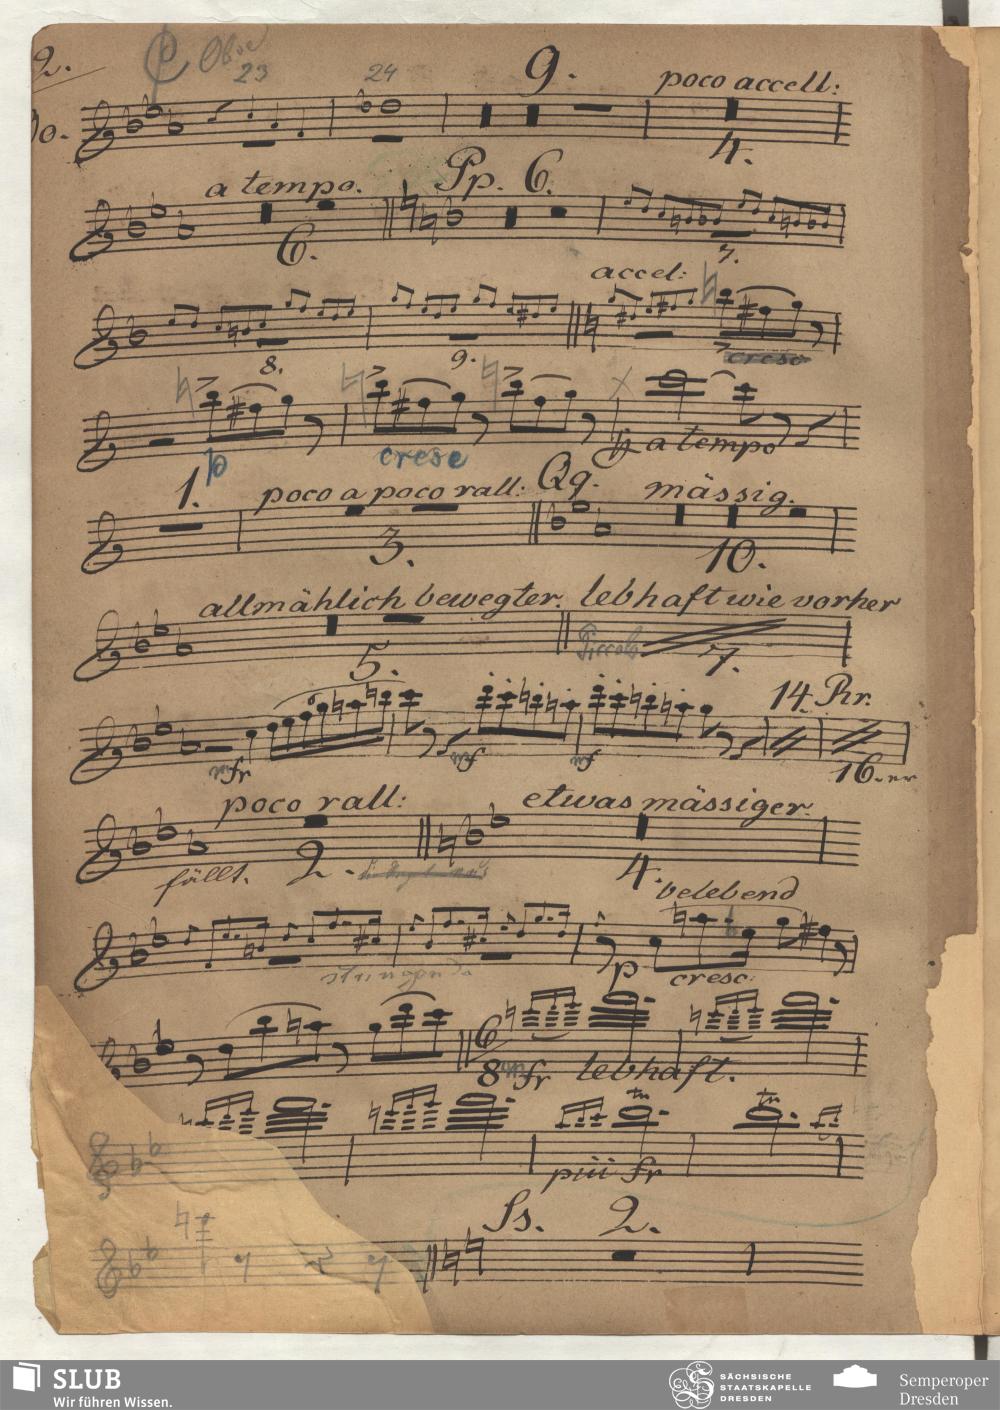 2. Oboe
23 24 9. poco accell:
Oo. 4.
a tempo. Pp. 6.
6. 7.
accel:
8. 9. cresc
p cresc a tempo
1. poco a poco rall: Qq. mässig.
3. 10.
allmählich bewegter. lebhaft wie vorher
5. Piccolo 7.
14. Rr.
mfr mf mf 16.
poco rall: etwas mässiger.
fällt. 2. 4.
belebend
stringendo p cresc:
6
8 mfr lebhaft.
tr tr
più fr
Ss. 2.
SLUB
Wir führen Wissen.
SÄCHSISCHE
STAATSKAPELLE
DRESDEN
Semperoper
Dresden